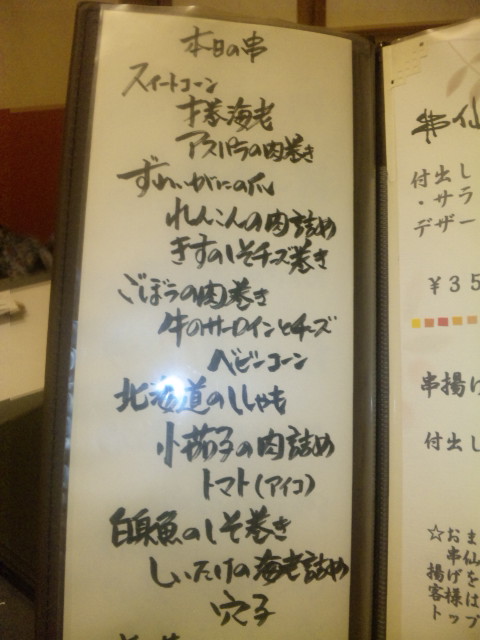 本日の串
スイートコーン
才巻海老
アスパラの肉巻き
ずわいがにの爪
れんこんの肉詰め
きすのしそチーズ巻き
ごぼうの肉巻き
牛のサーロインとチーズ
ベビーコーン
北海道のししゃも
小茄子の肉詰め
トマト(アイコ)
白身魚のしそ巻き
しいたけの海老詰め
穴子
串仙
付出し
・サラ
デザー
¥35
串揚げ
付出し
☆おま
串仙
揚げを
客様は
トップ